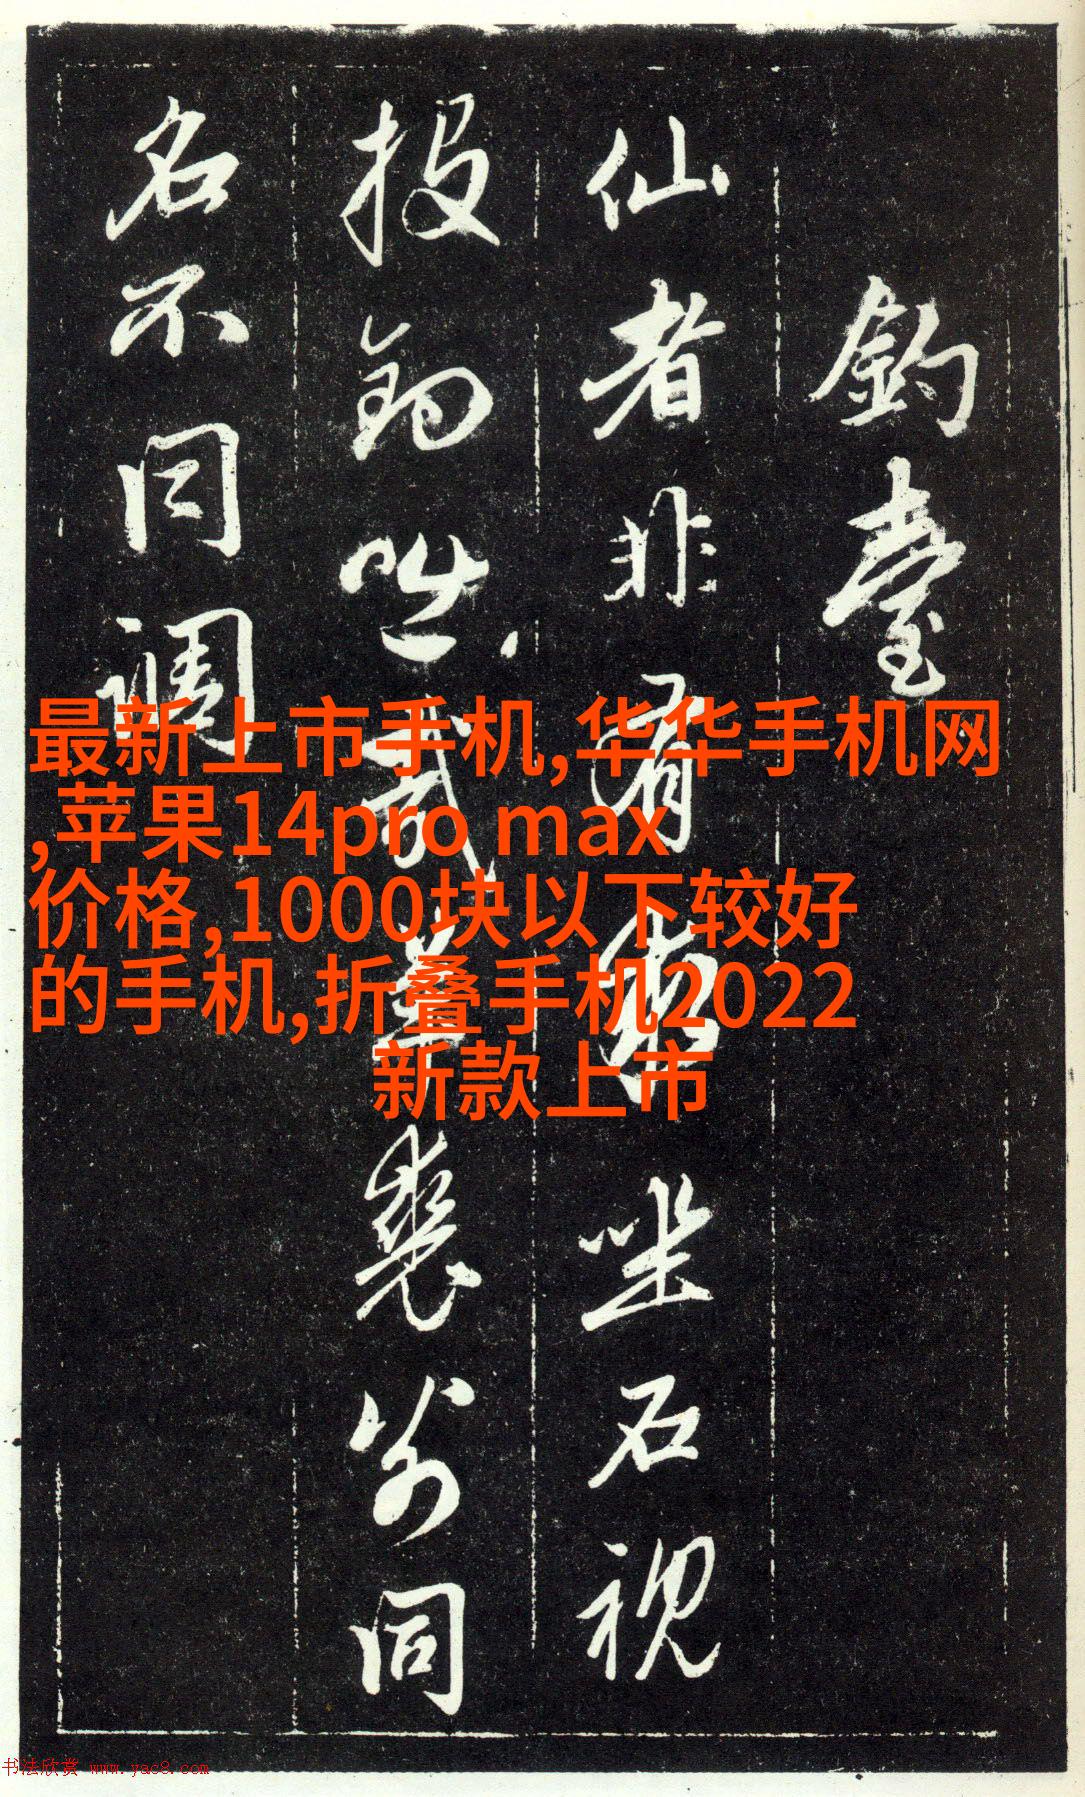 釣臺
仙者非有坐石視
投釣咄哉裘同
名不同調
最新上市手机,华华手机网
,苹果14pro max
价格,1000块以下较好
的手机,折叠手机2022
新款上市
书法欣赏 www.yac8.com